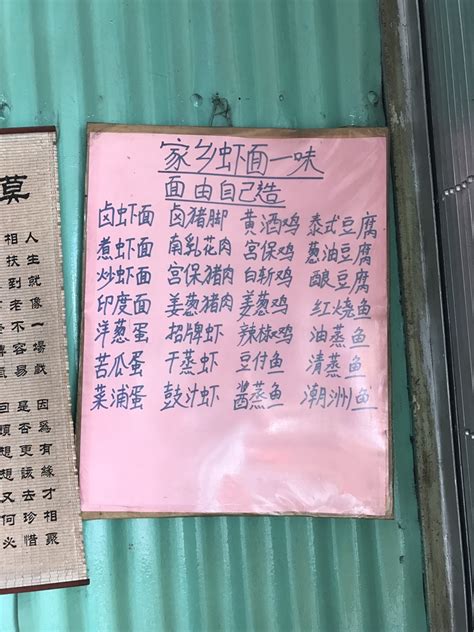 家乡虾面一味
面由自己造
卤虾面 卤猪脚 黄酒鸡 泰式豆腐
煮虾面 南乳花肉 宫保鸡 葱油豆腐
炒虾面 宫保猪肉 白斩鸡 酿豆腐
印度面 姜葱猪肉 姜葱鸡 红烧鱼
洋葱蛋 招牌虾 辣椒鸡 油蒸鱼
苦瓜蛋 干蒸虾 豆付鱼 清蒸鱼
菜浦蛋 鼓汁虾 酱蒸鱼 潮州鱼
莫
人生就像一場戲
相扶到老不容易
因為有緣才相聚
是否更該去珍惜
回頭想想又何必